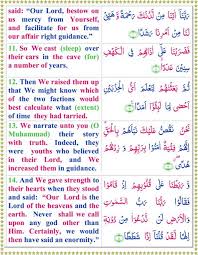 said: "Our Lord, bestow on
us mercy from Yourself,
and facilitate for us from
our affair right guidance."
رَبَّنَا آتِنَا مِنْ لَّدُنْكَ رَحْمَةً وَّهَيِّئْ
لَنَا مِنْ أَمْرِنَا رَشَدًا
11. So We cast (sleep) over
their ears in the cave (for)
a number of years.
فَضَرَبْنَا عَلَى آذَانِهِمْ فِي الْكَهْفِ
سِنِينَ عَدَدًا
12. Then We raised them up
that We might know which
of the two factions would
best calculate what (extent)
of time they had tarried.
ثُمَّ بَعَثْنَاهُمْ لِنَعْلَمَ أَيُّ الْحِزْبَيْنِ
أَحْصَى لِمَا لَبِثُوا أَمَدًا
13. We narrate unto you (O
Muhammad) their story
with truth. Indeed, they
were youths who believed
in their Lord, and We
increased them in guidance.
نَحْنُ نَقُصُّ عَلَيْكَ نَبَأَهُمْ بِالْحَقِّ
إِنَّهُمْ فِتْيَةٌ آمَنُوا بِرَبِّهِمْ وَزِدْنَاهُمْ
هُدًى
14. And We gave strength to
their hearts when they stood
and said: "Our Lord is the
Lord of the heavens and the
earth. Never shall we call
upon any god other than
Him. Certainly, we would
then have said an enormity."
وَّرَبَطْنَا عَلَى قُلُوبِهِمْ إِذْ قَامُوا
فَقَالُوا رَبُّنَا رَبُّ السَّمَاوَاتِ